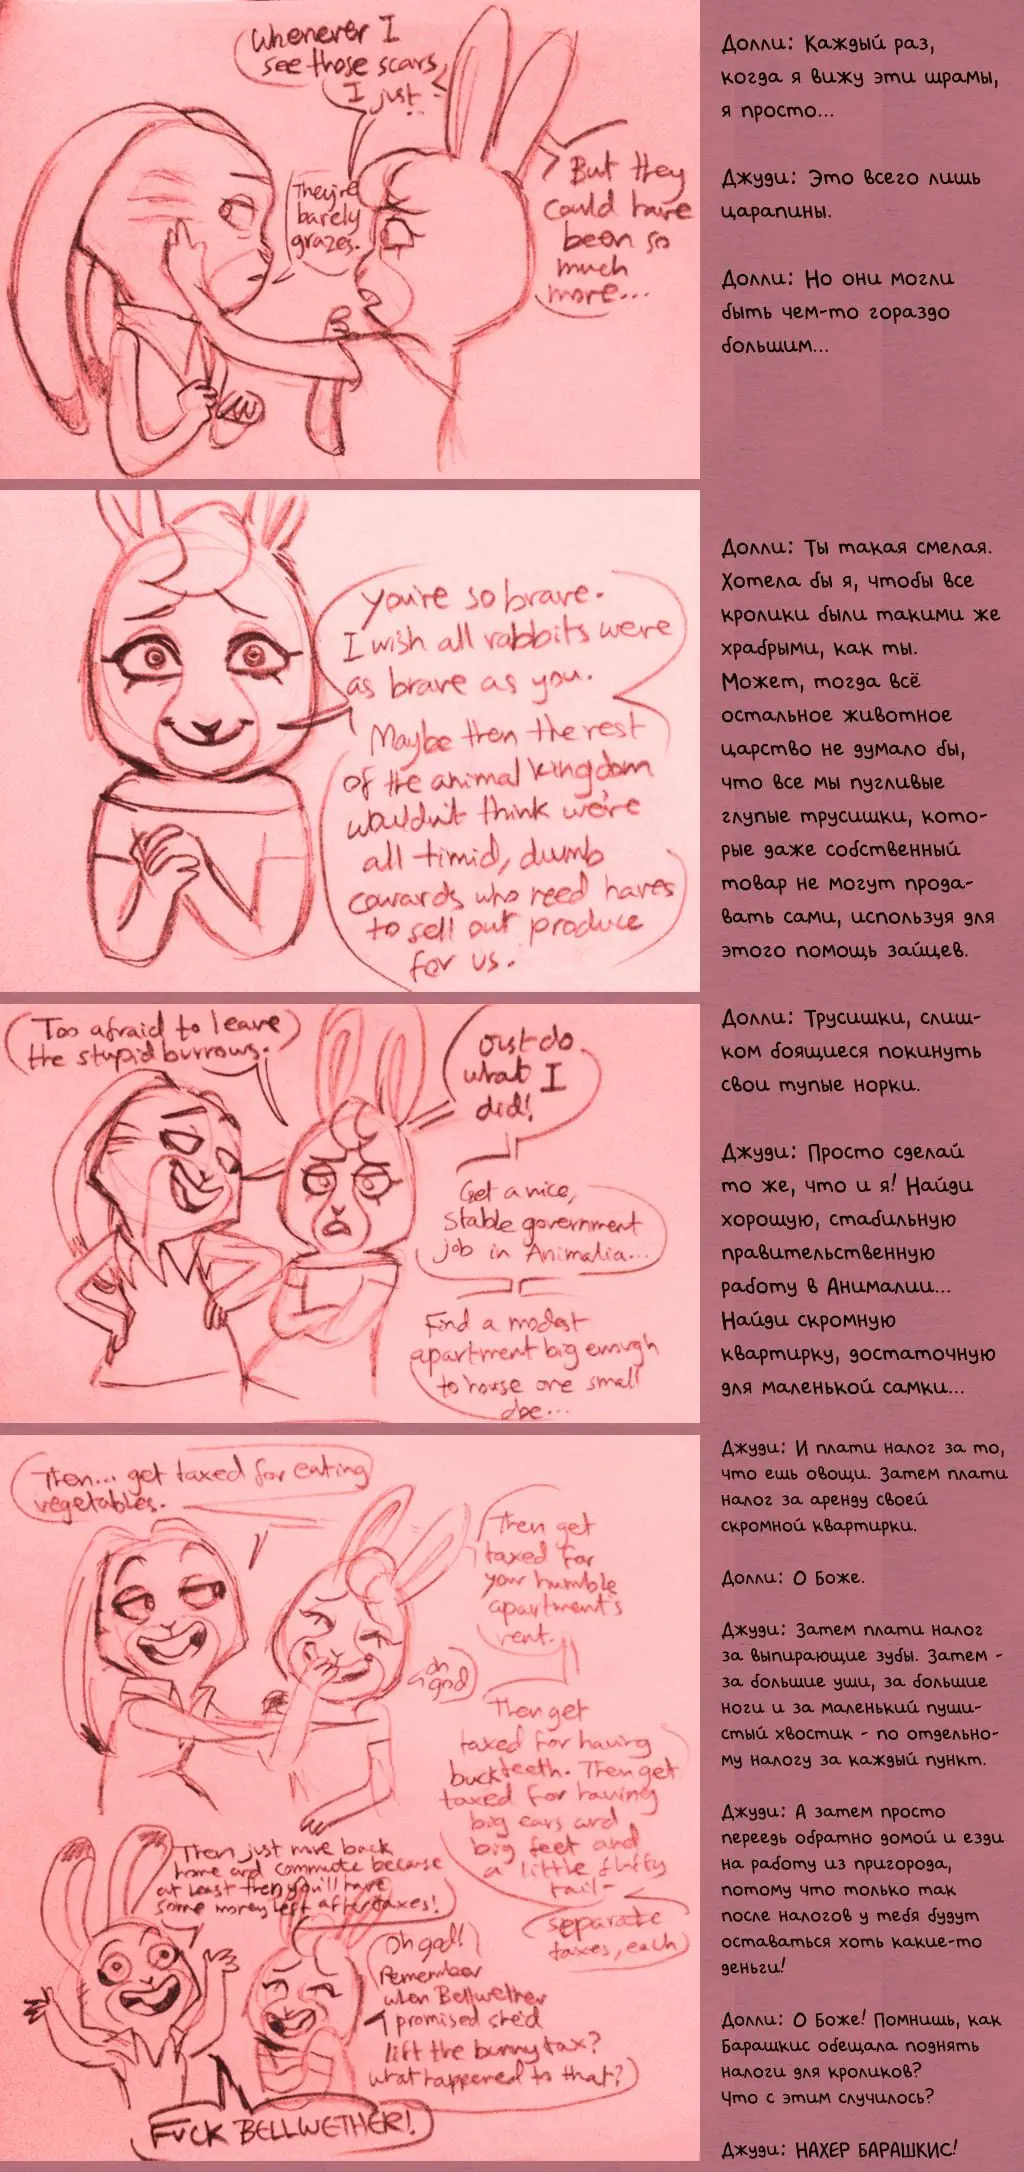 Whenever I
see those scars,
I just..
They're
barely
grazes.
But they
could have
been so
much
more...
Долли: Каждый раз,
когда я вижу эти шрамы,
я просто...
Джуди: Это всего лишь
царапины.
Долли: Но они могли
быть чем-то гораздо
большим...
you're so brave.
I wish all rabbits were
as brave as you.
Maybe then the rest
of the animal kingdom
wouldn't think we're
all timid, dumb
cowards who need hares
to sell out produce
for us.
Долли: Ты такая смелая.
Хотела бы я, чтобы все
кролики были такими же
храбрыми, как ты.
Может, тогда всё
остальное животное
царство не думало бы,
что все мы пугливые
глупые трусишки, кото-
рые даже собственный
товар не могут прода-
вать сами, используя для
этого помощь зайцев.
Too afraid to leave
the stupid burrows.
Just do
what I
did!
Get a nice,
stable government
job in Animalia...
Find a modest
apartment big enough
to house one small
doe...
Долли: Трусишки, слиш-
ком боящиеся покинуть
свои тупые норки.
Джуди: Просто сделай
то же, что и я! Найди
хорошую, стабильную
правительственную
работу в Анималии...
Найди скромную
квартирку, достаточную
для маленькой самки...
Then... get taxed for eating
vegetables.
Then get
taxed for
your humble
apartment's
rent.
oh
god
Then get
taxed for having
buckteeth. Then get
taxed for having
big ears and
big feet and
a little fluffy
tail-
separate
taxes, each
Then just move back
home and commute because
at least then you'll have
some money left after taxes!
Oh god!
Remember
when Bellwether
promised she'd
lift the bunny tax?
what happened to that?
FUCK BELLWETHER!
Джуди: И плати налог за то,
что ешь овощи. Затем плати
налог за аренду своей
скромной квартирки.
Долли: О Боже.
Джуди: Затем плати налог
за выпирающие зубы. Затем -
за большие уши, за большие
ноги и за маленький пуши-
стый хвостик - по отдельно-
му налогу за каждый пункт.
Джуди: А затем просто
переедь обратно домой и езди
на работу из пригорода,
потому что только так
после налогов у тебя будут
оставаться хоть какие-то
деньги!
Долли: О Боже! Помнишь, как
Барашкис обещала поднять
налоги для кроликов?
Что с этим случилось?
Джуди: НАХЕР БАРАШКИС!